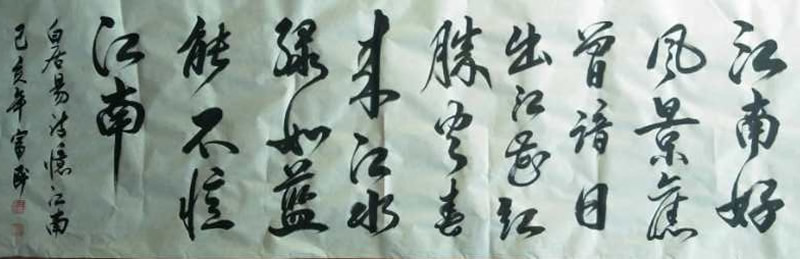 江南好
风景舊
曾諳日
出江花红
勝火春
来江水
绿如蓝
能不憶
江南
白居易诗憶江南
己亥年富